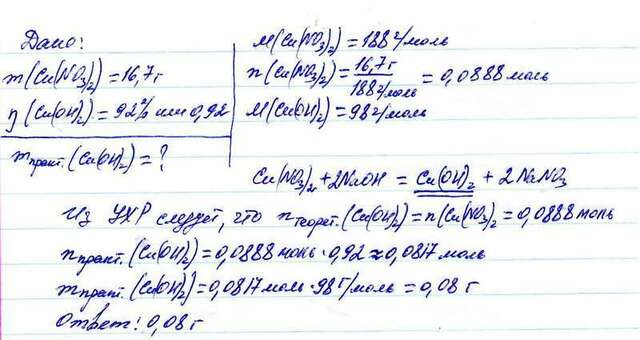 Дано:
m(Cu(NO3)2) = 16,7 г
η(Cu(OH)2) = 92% или 0,92
mпракт.(Cu(OH)2) = ?
M(Cu(NO3)2) = 188 г/моль
n(Cu(NO3)2) = 16,7 г / 188 г/моль = 0,0888 моль
M(Cu(OH)2) = 98 г/моль
Cu(NO3)2 + 2NaOH = Cu(OH)2 + 2NaNO3
Из УХР следует, что nтеорет.(Cu(OH)2) = n(Cu(NO3)2 = 0,0888 моль
nпракт.(Cu(OH)2) = 0,0888 моль · 0,92 ≈ 0,0817 моль
mпракт.(Cu(OH)2) = 0,0817 моль · 98 г/моль = 0,08 г
Ответ: 0,08 г